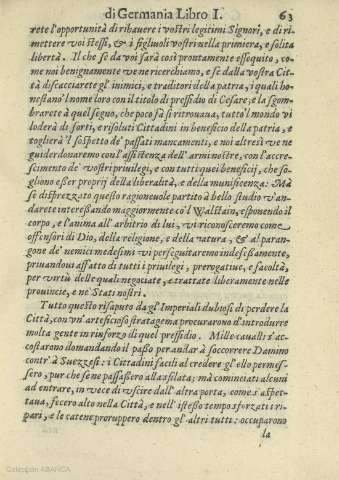 di Germania Libro I. 63
rete l'opportunità di rihauere i vostri legitimi Signori, e di ri-
mettere voi stessi, & i figliuoli vostri nella primiera, e solita
libertà. Il che se da voi sarà così prontamente essequito, co-
me noi benignamente ve ne ricerchiamo, e se dalla vostra Cit-
tà discacciarete gl'inimici, e traditori della patria, i quali ho-
nestano'l nome loro con il titolo di pressidio di Cesare, e la sgom-
brarete à quel segno, che poco fà si ritrouaua, tutto'l mondo vi
loderà di forti, e risoluti Cittadini in beneficio della patria, e
toglierà l sospetto de' passati mancamenti, e noi altresì ve ne
guiderdonaremo con l'assistenza dell'armi nostre, con l'accre-
scimento de' vostri privilegi, e con tutti quei beneficij, che so-
gliono esser proprij della liberalità, e della munificenza: Mà
se disprezzato questo ragioneuole partito à bello studio v'an-
darete interessando maggiormente co'l Walstain, esponendo il
corpo, e l'anima all'arbitrio di lui, vi riconosceremo come
offensori di Dio, della religione, e della natura, & al paran-
gone de' nemici medesimi vi perseguitaremo indefessamente,
priuandoui affatto di tutti i priuilegi, prerogatiue, e facoltà,
per virtù delle quali negotiate, e trattate liberamente nelle
prouincie, e ne' Stati nostri.
Tutto questo risaputo da gl'Imperiali dubiosi di perdere la
Città, con vn'arteficioso stratagema procurarono d'introdurre
molta gente in rinforzo di quel pressidio. Mille caualli s'ac-
costarono domandando il passo per andar à soccorrere Damino
contr'à Suezzesi: i Cittadini facili al credere gl'ello permes-
sero, pur che se ne passassero alla sfilata; mà cominciati alcuni
ad entrare, in vece di vscire dall'altra porta, come s'aspet-
taua, fecero alto nella Città, e nell'istesso tempo sforzati i ri-
pari, e le catene proruppero dentro gl'altri tutti: occuparono
la
Colección ABANCA